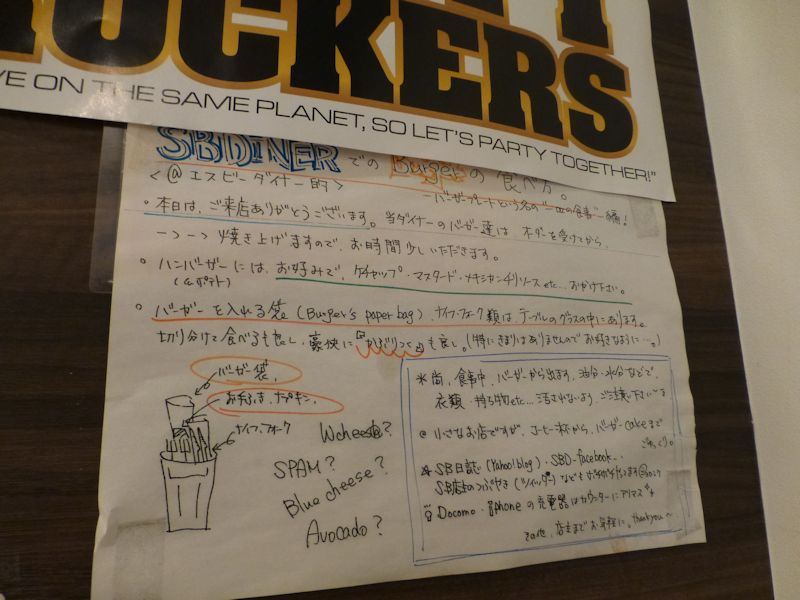 ROCKERS
VE ON THE SAME PLANET, SO LET'S PARTY TOGETHER!"
SBDINER での Burgerの食べ方。
<@エスビーダイナー的>
ーバーガープレートという名の"一皿の食事"編!
。本日は、ご来店ありがとうございます。当ダイナーのバーガー達は、オーダーを受けてから、
一つ一つ焼き上げますので、お時間少しいただきます。
。ハンバーガーには、お好みで、ケチャップ・マスタード・メキシカンチリソース etc... おかけ下さい。
(&ポテト)
。バーガーを入れる袋(Burger's paper bag)、ナイフ・フォーク類は、テーブルのグラスの中にあります。
切り分けて食べるも良し、豪快に『かぶりつく』も良し。(特にきまりはありませんのでお好きなように…。)
バーガー袋
お手ふき、ナプキン。
ナイフ、フォーク
Wcheese?
SPAM?
Blue cheese?
Avocado?
※尚、食事中、バーガーから出ます、油分・水分などで、
衣類・持ち物etc... 汚されないよう、ご注意下さい
@ 小さなお店ですが、コーヒー杯から、バーガー、cakeまで
ごゆっくり。
SB日誌(Yahoo!blog)・SBD-facebook...
SB店主のつぶやき(ツイッター)なども
Docomo・iphoneの充電器はカウンターにアリマス
その他、店主までお気軽に。thankyou〜